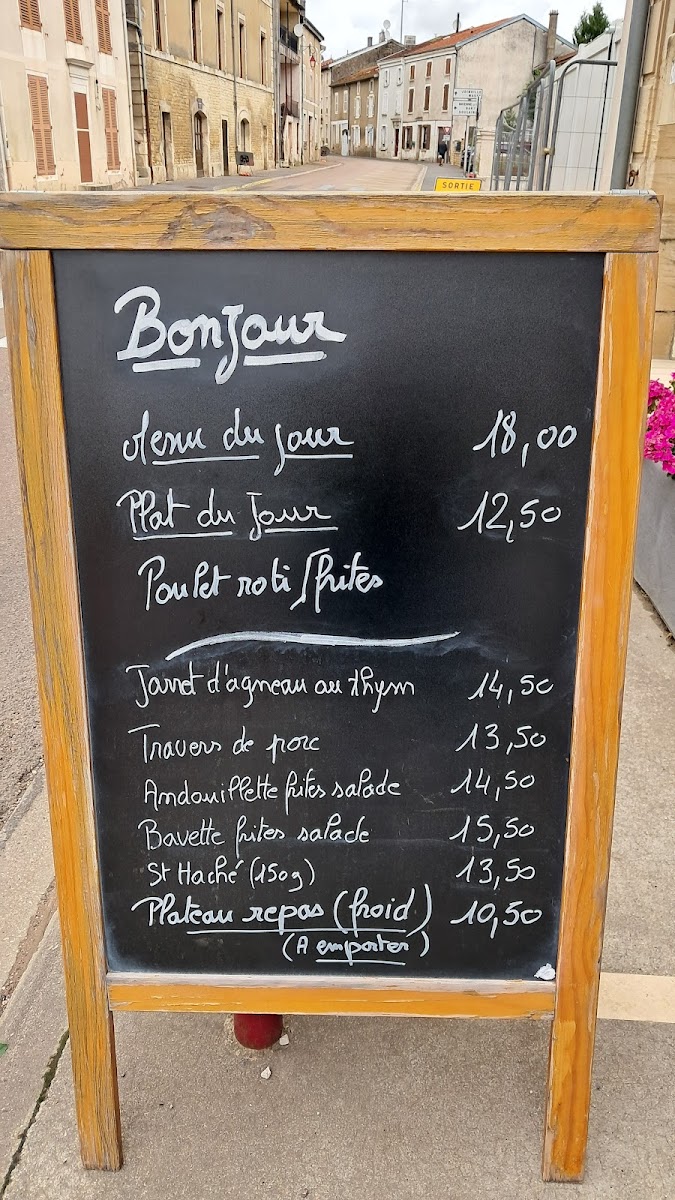 SORTIE
Bonjour
Menu du jour 18,00
Plat du Jour 12,50
Poulet roti/frites
Jarret d'agneau au thym 14,50
Travers de porc 13,50
Andouillette frites salade 14,50
Bavette frites salade 15,50
St Haché (150g) 13,50
Plateau repas (froid) 10,50
(A emporter)